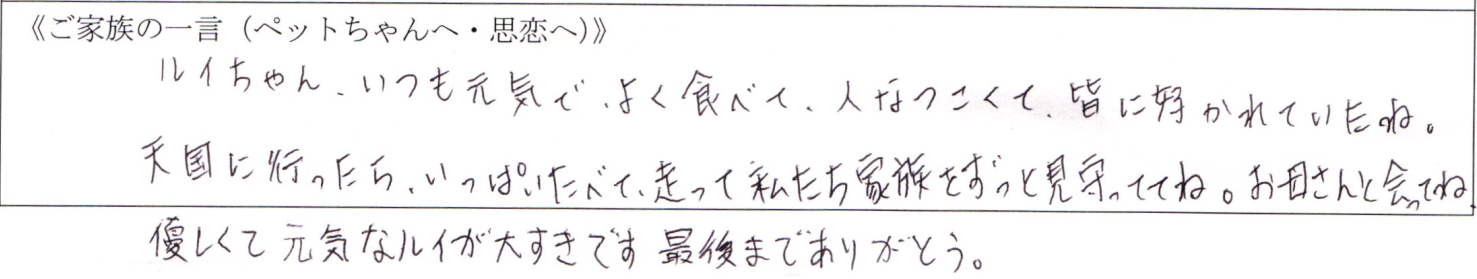 《ご家族の一言（ペットちゃんへ・思恋へ）》
ルイちゃん、いつも元気で、よく食べて、人なつこくて、皆に好かれていたね。
天国に行ったら、いっぱいたべて、走って私たち家族をずっと見守っててね。お母さんと会ってね
優しくて元気なルイが大すきです 最後までありがとう。